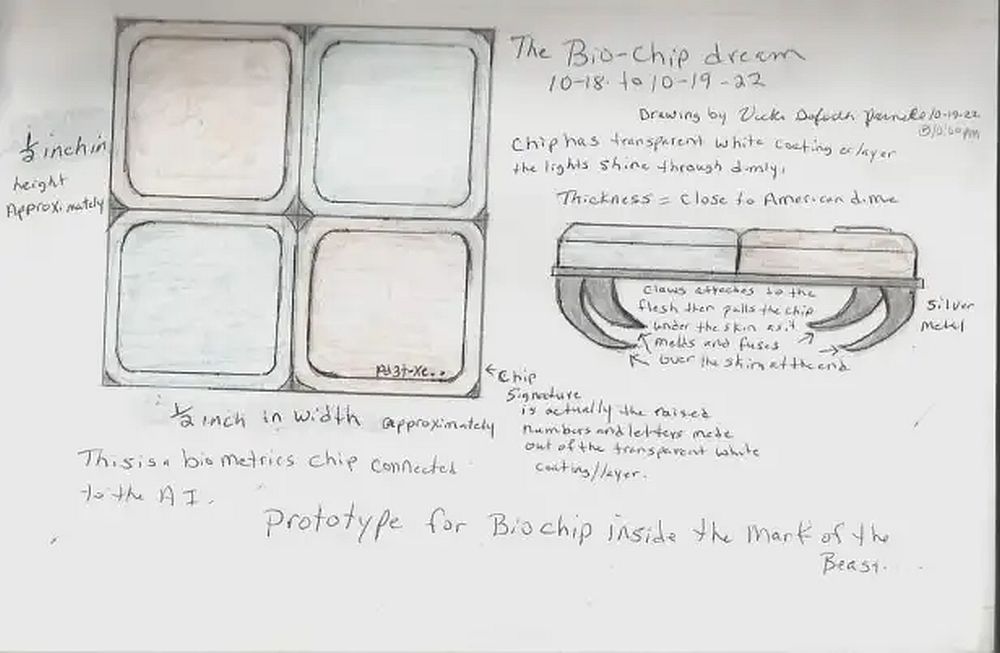 The Bio-Chip dream
10-18. to 10-19-22
Drawing by 10-19-22
@10:00pm
Chip has transparent white coating or layer
the lights shine through dimly.
Thickness = Close to American dime
½ inch in
height
Approximately
Claws attaches to the
flesh then pulls the chip
under the skin as it
melts and fuses
over the skin at the end
Silver
metal
Pd3t-Xe..
Chip
Signature
is actually the raised
numbers and letters made
out of the transparent white
coating/layer.
½ inch in width approximately
This is a biometrics chip connected
to the AI.
Prototype for Biochip inside the Mark of the
Beast.